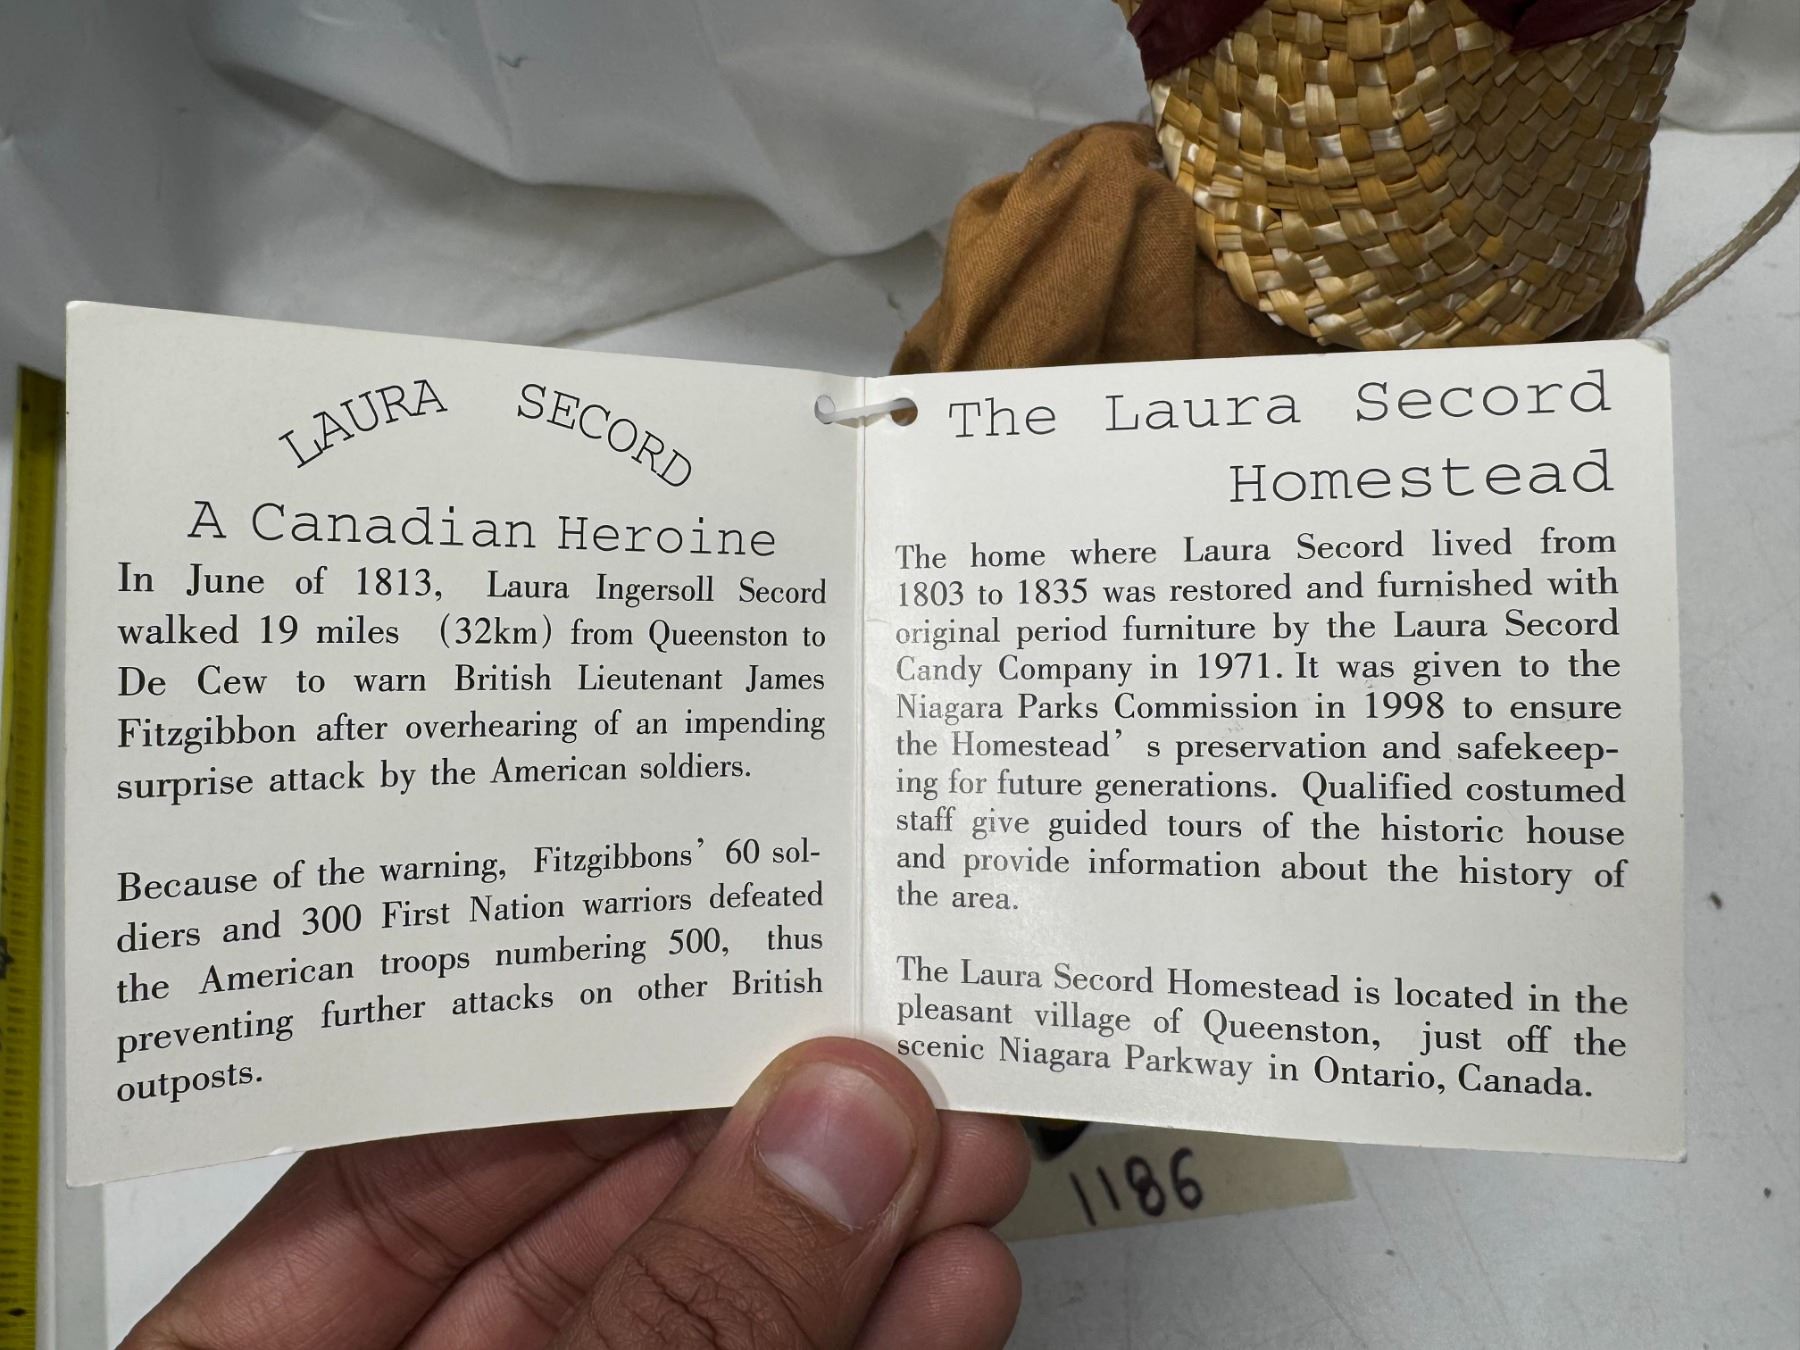 LAURA SECORD
A Canadian Heroine
In June of 1813, Laura Ingersoll Secord
walked 19 miles (32km) from Queenston to
De Cew to warn British Lieutenant James
Fitzgibbon after overhearing of an impending
surprise attack by the American soldiers.
Because of the warning, Fitzgibbons' 60 sol-
diers and 300 First Nation warriors defeated
the American troops numbering 500, thus
preventing further attacks on other British
outposts.
The Laura Secord
Homestead
The home where Laura Secord lived from
1803 to 1835 was restored and furnished with
original period furniture by the Laura Secord
Candy Company in 1971. It was given to the
Niagara Parks Commission in 1998 to ensure
the Homestead' s preservation and safekeep-
ing for future generations. Qualified costumed
staff give guided tours of the historic house
and provide information about the history of
the area.
The Laura Secord Homestead is located in the
pleasant village of Queenston, just off the
scenic Niagara Parkway in Ontario, Canada.
1186